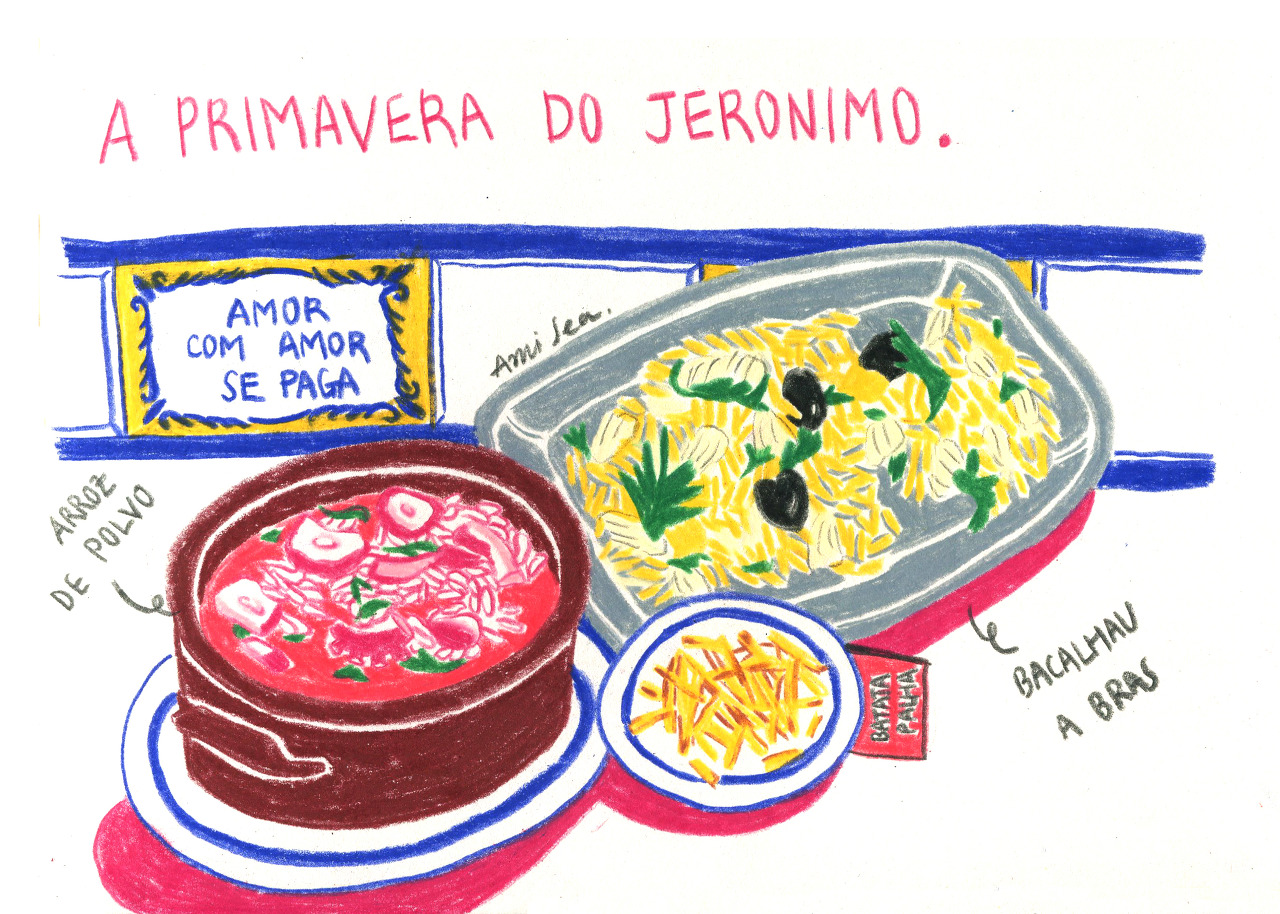 A PRIMAVERA DO JERONIMO.
AMOR
COM AMOR
SE PAGA
Ami Sea.
ARROZ
DE POLVO
BATATA
PALHA
BACALHAU
A BRAS